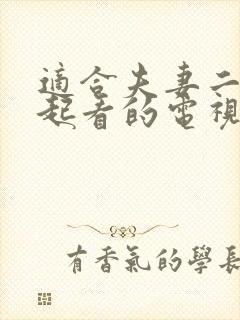 適合夫妻二
起看的電視
有香氣的學長